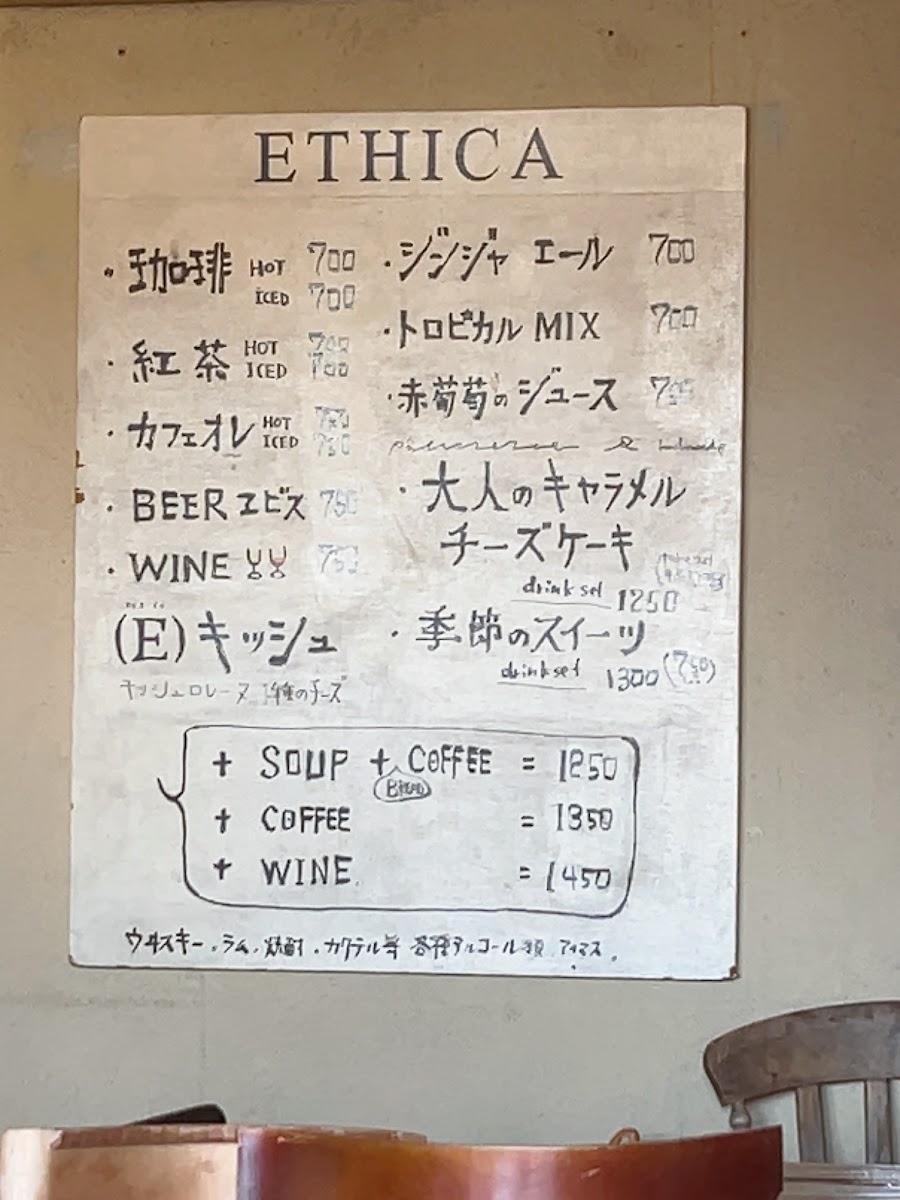 ETHICA
・珈琲 HOT 700
ICED 700
・紅茶 HOT 700
ICED 700
・カフェオレ HOT 750
ICED 750
・BEER エビス 750
・WINE 750
(E)キッシュ
キッシュロレーヌ 種のチーズ
・ジンジャエール 700
・トロピカル MIX 700
・赤葡萄のジュース
・大人のキャラメル
チーズケーキ
drink set 1250
・季節のスイーツ
drink set 1300 (750)
+ SOUP + COFFEE = 1250
+ COFFEE = 1350
+ WINE = 1450
ウヰスキー・ラム・焼酎・カクテル等 各種アルコール類 アリマス。